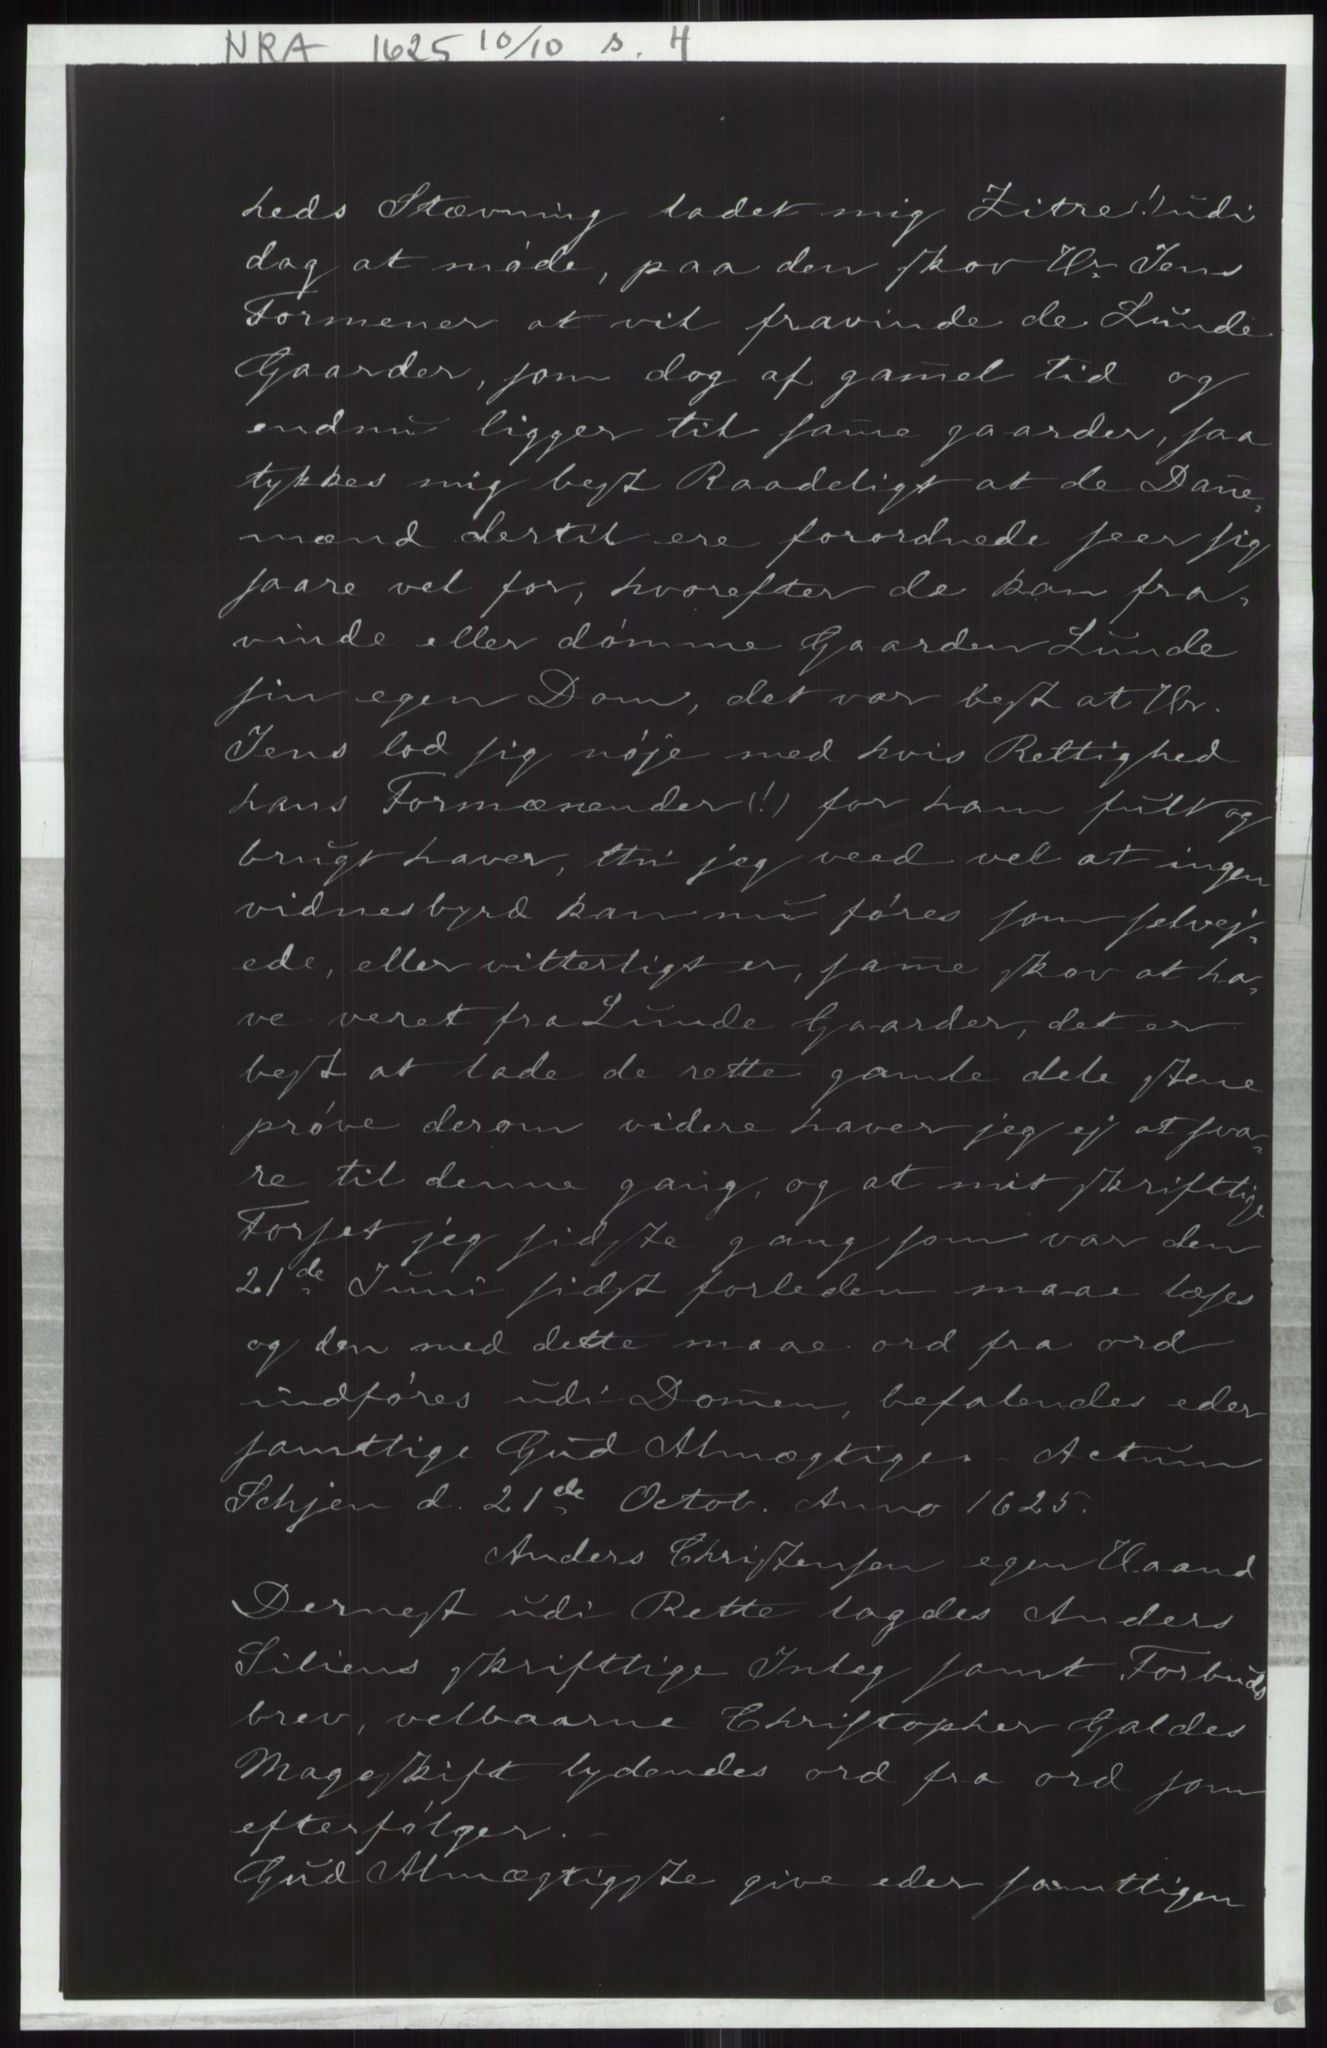 NRA 1625 10/10 s. 4
heds Stævning ladet mig Zitre (!) udi
dag at møde, paa den skov Hr. Jens
Formener at vil fravinde de Lunde
Gaarder, som dog af gam̅el tid og
endnu ligger til sam̅e gaarder, saa
tykkes mig best Raadeligt at de Dan̅e-
mænd dertil ere forordnede seer sig
saare vel for, hvorefter de kan fra-
vinde eller dømme Gaarden Lunde
sin egen Dom, det var best at Hr.
Jens lod sig nøje med hvis Rettighed
hans Formænender (!) for ham fult og
brugt haver, thi jeg veed vel at ingen
vidnesbyrd kan nu føres som selvej-
ede, eller vitterligt er, sam̅e skov at ha-
ve veret fra Lunde Gaarder, det er
best at lade de rette gamle dele stene
prøve derom videre haver jeg ej at sva-
re til denne gang, og at mit skriftlige
Forset jeg sidste gang som var den
21de Juni sidst forleden maae læses
og den med dette maae ord fra ord
indføres udi Dom̅en, befalendes eder
samttlige Gud Almægtige. - Actum
Schjen d. 21de Octob. Anno 1625.
Anders Christensen egen Haand
Dernest udi Rette lagdes Anders
Siliens skriftlige Inleg samt Forbuds
brev, velbaarne Christopher Galdes
Mageskift lydendes ord fra ord som
efterfølger. -
Gud Almægtigste give eder samttligen